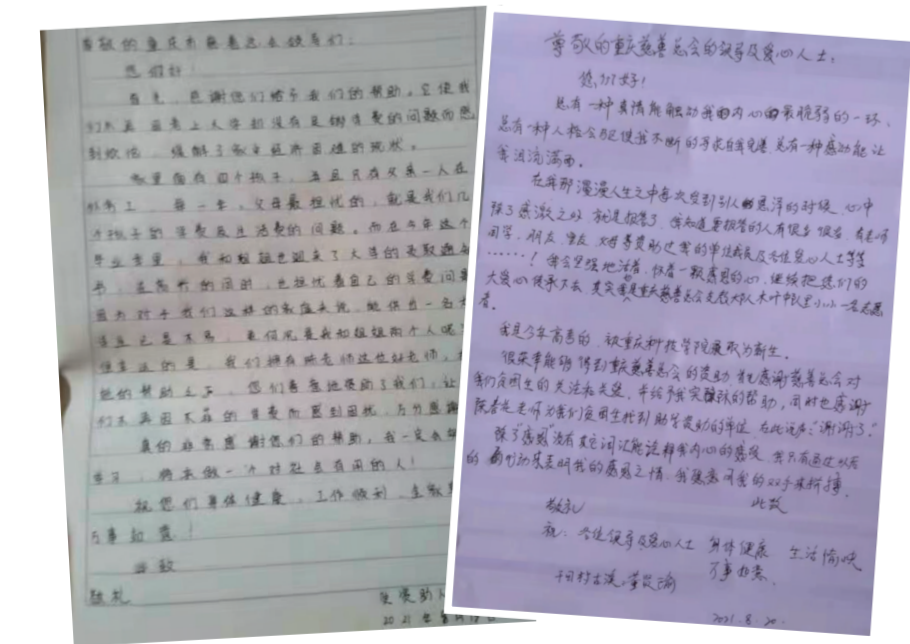 尊敬的重庆市慈善总会领导们：
您们好！
首先，感谢您们给予我们的帮助。它使我
们不再因考上大学却没有足够学费的问题而感
到烦恼，缓解了家里经济困难的现状。
家里面有四个孩子，并且只有父亲一人在
外务工，每一年，父母最担忧的，就是我们几
个孩子的学费及生活费的问题。而在今年这个
毕业季里，我和姐姐也迎来了大学的录取通知
书，在高兴的同时，也担忧着自己的学费问题
因为对于我们这样的家庭来说，能供出一名大
学生已是不易，更何况是我和姐姐两个人呢？
但幸运的是，我们拥有陈老师这位好老师，在
她的帮助之下，您们善意地资助了我们，让
们不再因不菲的学费而感到困扰，万分感谢
真的非常感谢您们的帮助，我一定会努
学习，将来做一个对社会有用的人！
祝您们身体健康，工作顺利，
万事如意！
此致
敬礼
受资助人
2021年8月19日
尊敬的重庆慈善总会的领导及爱心人士：
您们好！
总有一种真情能触动我的内心最脆弱的一环，
总有一种人格会驱使我不断的寻求自我完善，总有一种感动能让
我泪流满面。
在我那漫漫人生之中每次受到别人的恩泽的时候，心中
除了感激之外就是报答了，我知道要报答的人有很多很多，有老师
同学，朋友，
……！我会坚强地活着，怀着一颗感恩的心，继续把您们的
大爱心传承下去，其实我是重庆慈善总会走教大队木叶中队里小小一名志愿
者。
我是今年高考的，被重庆科技学院录取为新生。
很荣幸能够得到重庆慈善总会的资助，首先感谢慈善总会对
我们贫困生的关注和关爱，并给予我实实在在的帮助，同时也感谢
陈老师为我们贫困生找到助学资助的单位，在此说声："谢谢了"
除了"感恩"没有其它词汇能诠释我内心的感受，我只有通过以后
的行动来表明我的感恩之情，我愿意用我的双手来拼搏。
此致
敬礼
祝：各位领导及爱心人士 身体健康 生活愉快
万事如意
2021.8.20.